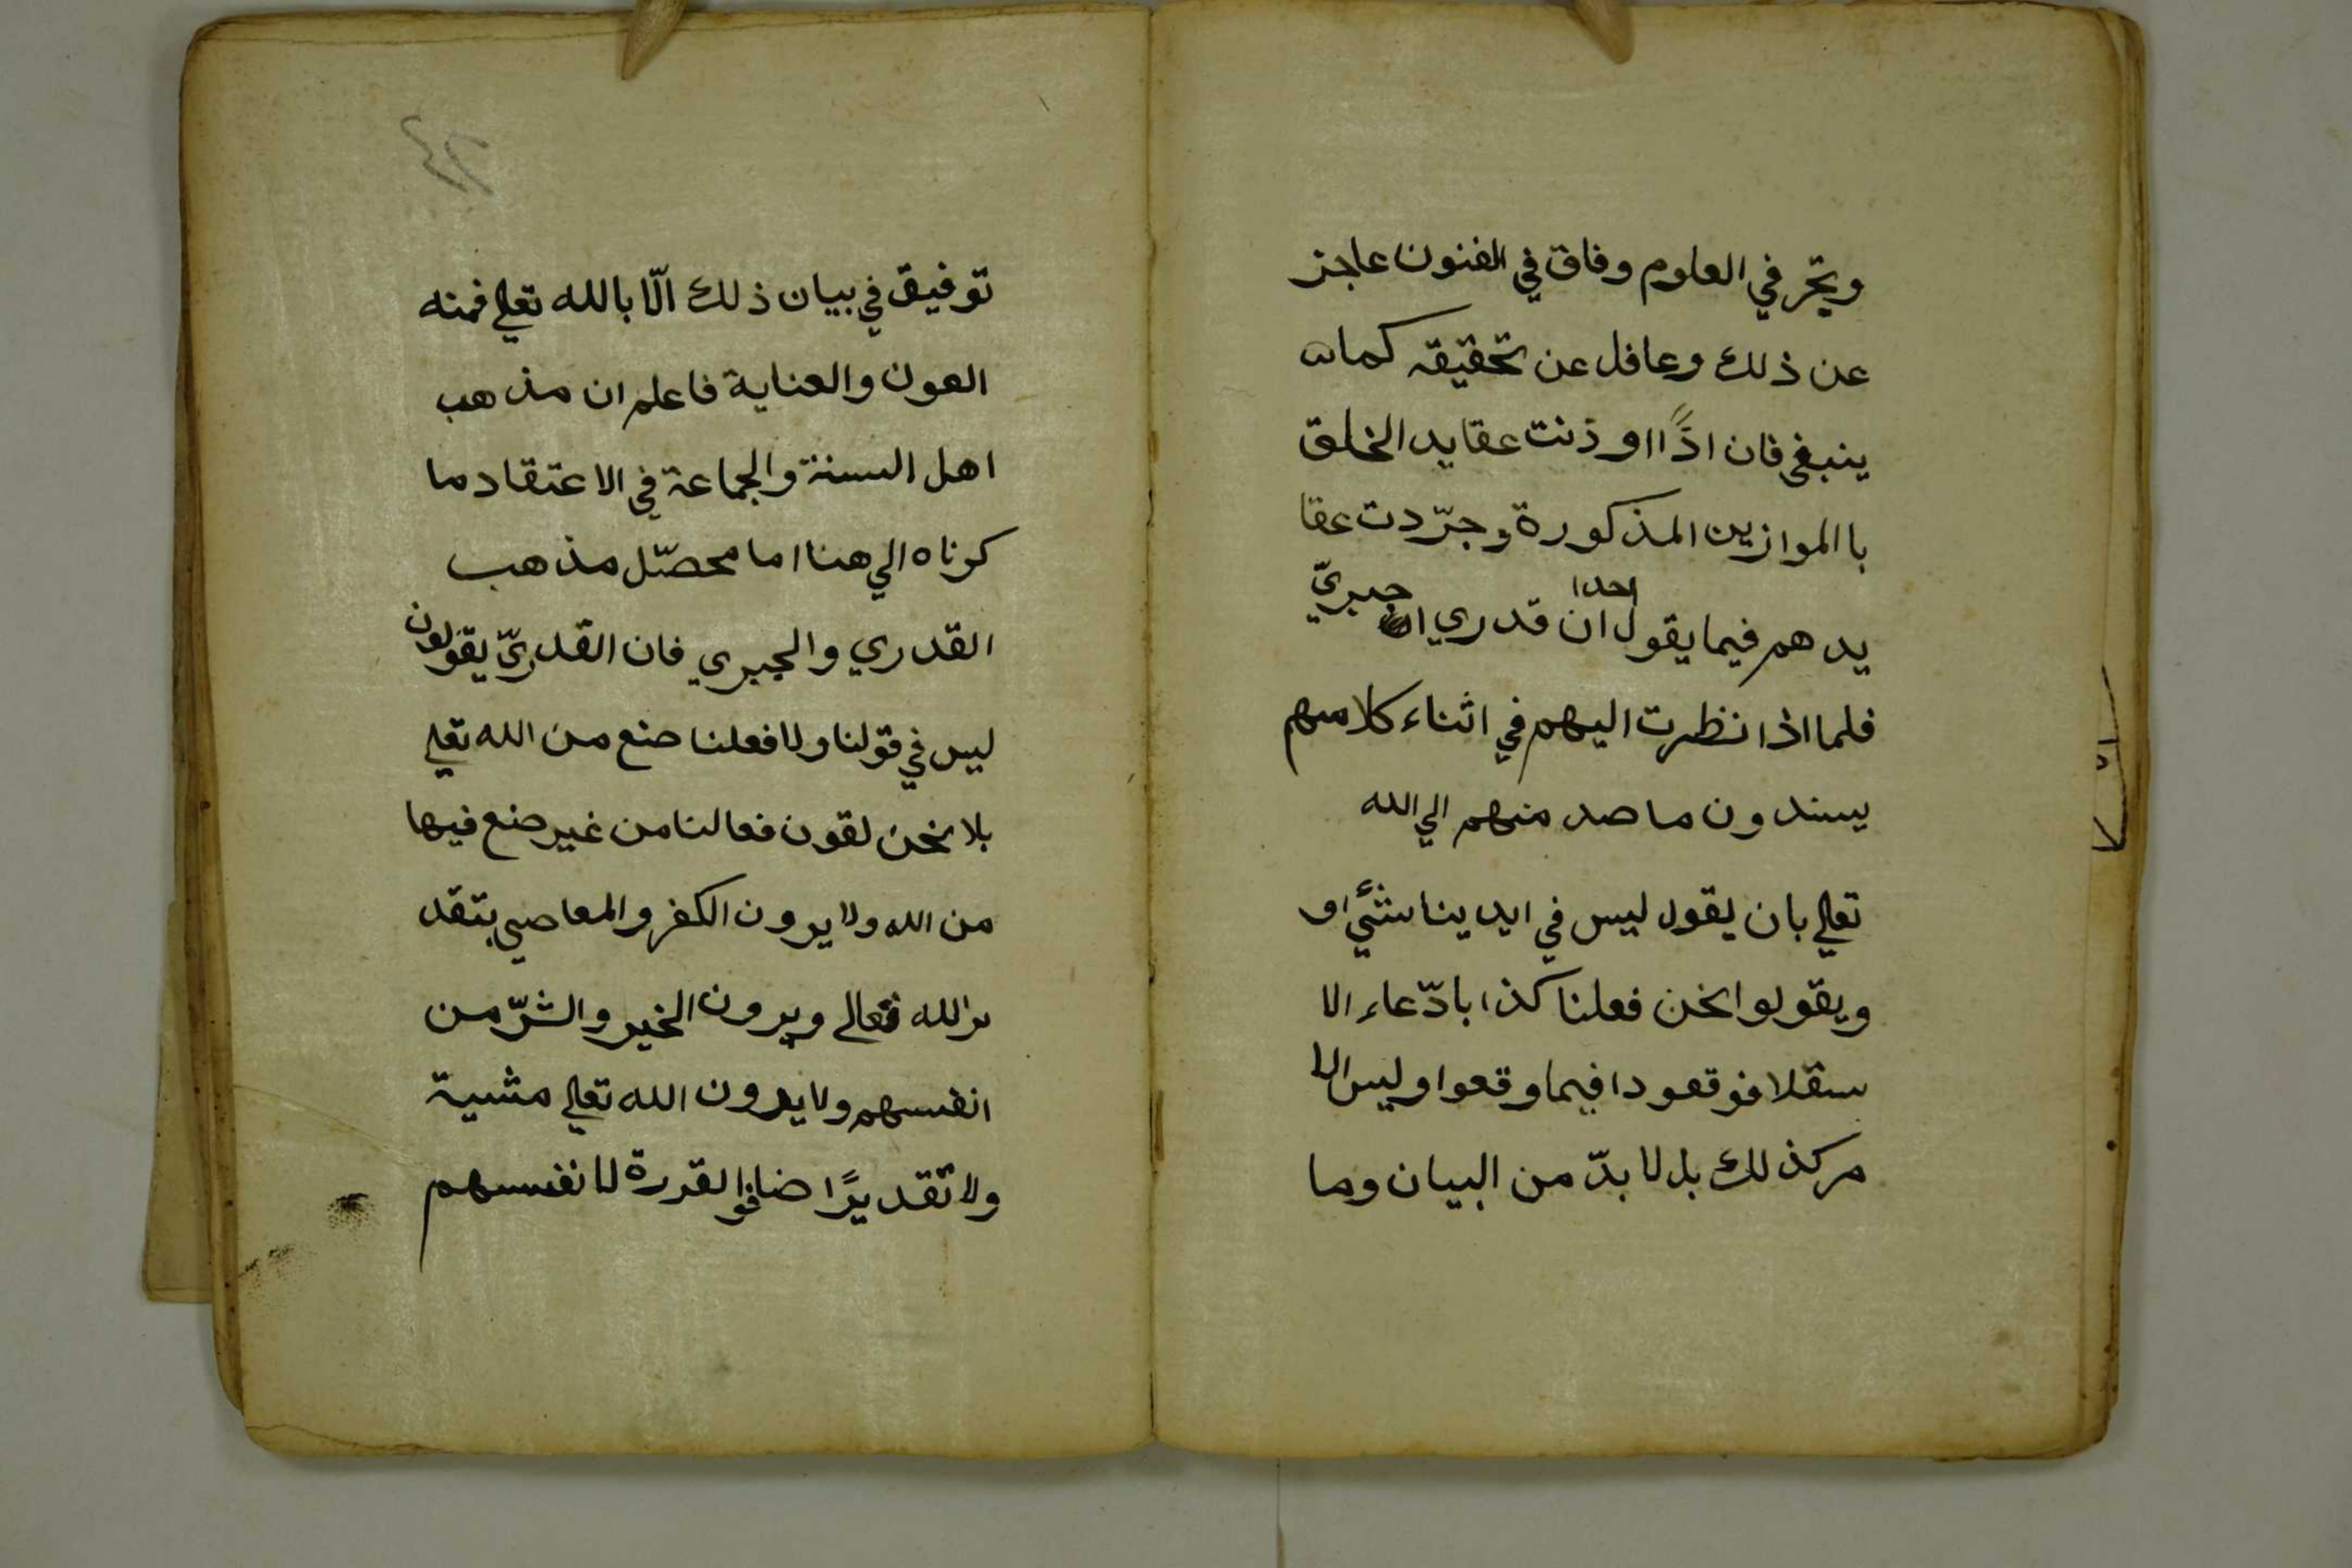 ويتحر في العلوم وفاق في الفنون عاجز
عن ذلك وعافل عن تحقيقه كمان
ينبغي فان اذًا اوذنت عقايد الخلق
باالموازين المذكورة وجرّدت عقا
يدهم فيما يقول احدا ان قدري ان جبريّ
فلما اذا نظرت اليهم في اثناء كلامهم
يسندون ما صد منهم الي الله
تعلي بان يقول ليس في ايدينا شئي او
ويقولوا نحن فعلنا كذا بادّعاء الا
ستقلا فوقعودا فيما وقعوا وليس الا
مر كذلك بل لا بدّ من البيان وما
٤٢
توفيق في بيان ذلك الّا بالله تعلي فمنه
العون والعناية فاعلم ان مذهب
اهل السنة والجماعة في الاعتقاد ما
كرناه الي هنا اما محصّل مذهب
القدري والجبري فان القدريّ يقولون
ليس في قولنا ولا فعلنا صنع من الله تعلي
بلا نحن لقون فعالنا من غير صنع فيها
من الله ولا يرون الكفر والمعاصي بتقد
ير الله تعالي ويرون الخير والشرّ من
انفسهم ولا يدون الله تعلي مشية
ولا تقديرًا ضافوا لقدرة لا نفسهم